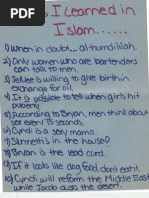 I Learned in
Islam.....
1) When in doubt... al-humdillah.
2) Only women who are bartenders
can talk to men.
3) Is willing to give birth in
exchange for oil.
4) It is possible to tell when girls hit
puberty
5) According to Bryan, men think about
sex every 75 seconds.
6) Cyndi is a sexy name.
7) house?
8) Bryan is the
9) If it looks like dog food, don't eat it!
10) Cyndi will reform the Middle East
while Jacob the desert.